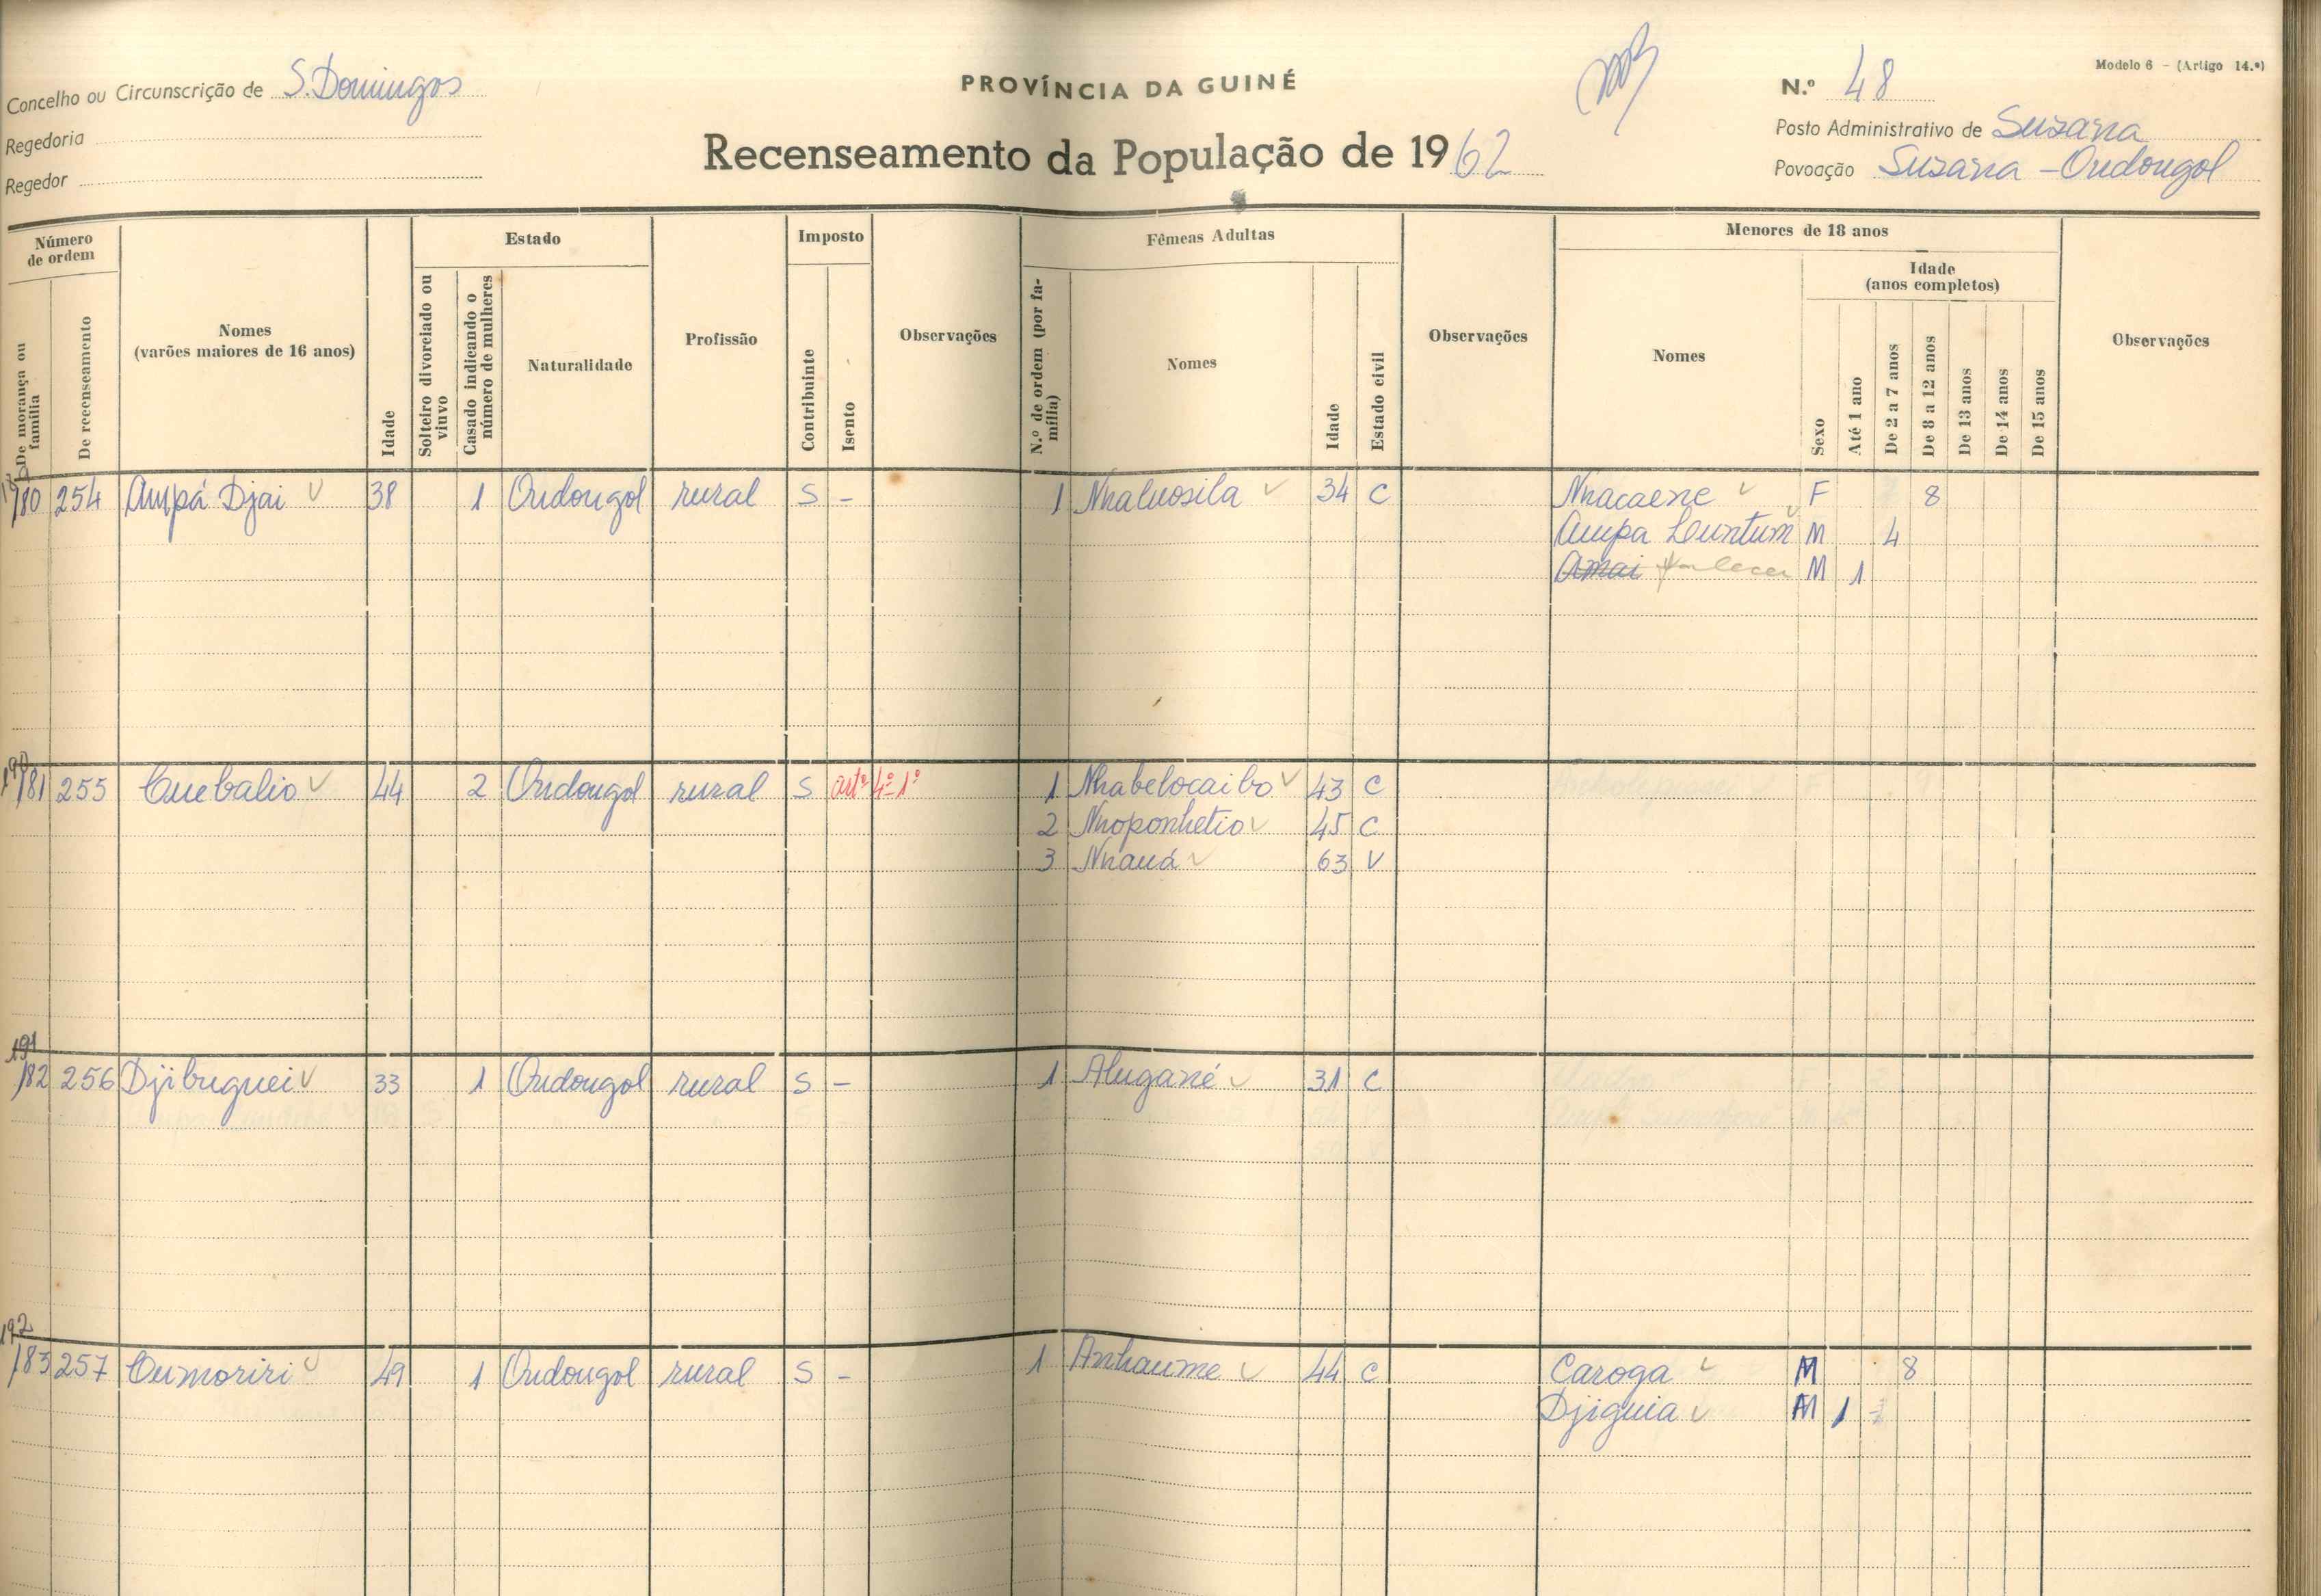 Concelho ou Circunscrição de S. Domingos
Regedoria
Regedor
PROVÍNCIA DA GUINÉ
Recenseamento da População de 1962
Modelo 6 - (Artigo 14.º)
N.º 48
Posto Administrativo de Suzana
Povoação Suzana - Oudougol
Número de ordem
De morança ou família
De recenseamento
Nomes (varões maiores de 16 anos)
Idade
Estado
Solteiro divorciado ou viuvo
Casado indicando o número de mulheres
Naturalidade
Profissão
Imposto
Contribuinte
Isento
Observações
Fêmeas Adultas
N.º de ordem (por família)
Nomes
Idade
Estado civil
Observações
Menores de 18 anos
Nomes
Sexo
Idade (anos completos)
Até 1 ano
De 2 a 7 anos
De 8 a 12 anos
De 13 anos
De 14 anos
De 15 anos
Observações
180 254 Ampá Djai 38 1 Oudougol rural S - 1 Nhaluosila 34 C Nhacaene F 8
Ampa Luntum M 4
Amai M 1
190
181 255 Cuebalio 44 2 Oudougol rural S artº 4º 1º 1 Nhabelocaibo 43 C
2 Nhoponhetio 45 C
3 Nhauá 63 V
191
182 256 Djibuguei 33 1 Oudougol rural S - 1 Alugané 31 C
192
183 257 Oumoriri 49 1 Oudougol rural S - 1 Anhaume 44 C Caroga M 8
Djiguia M 1